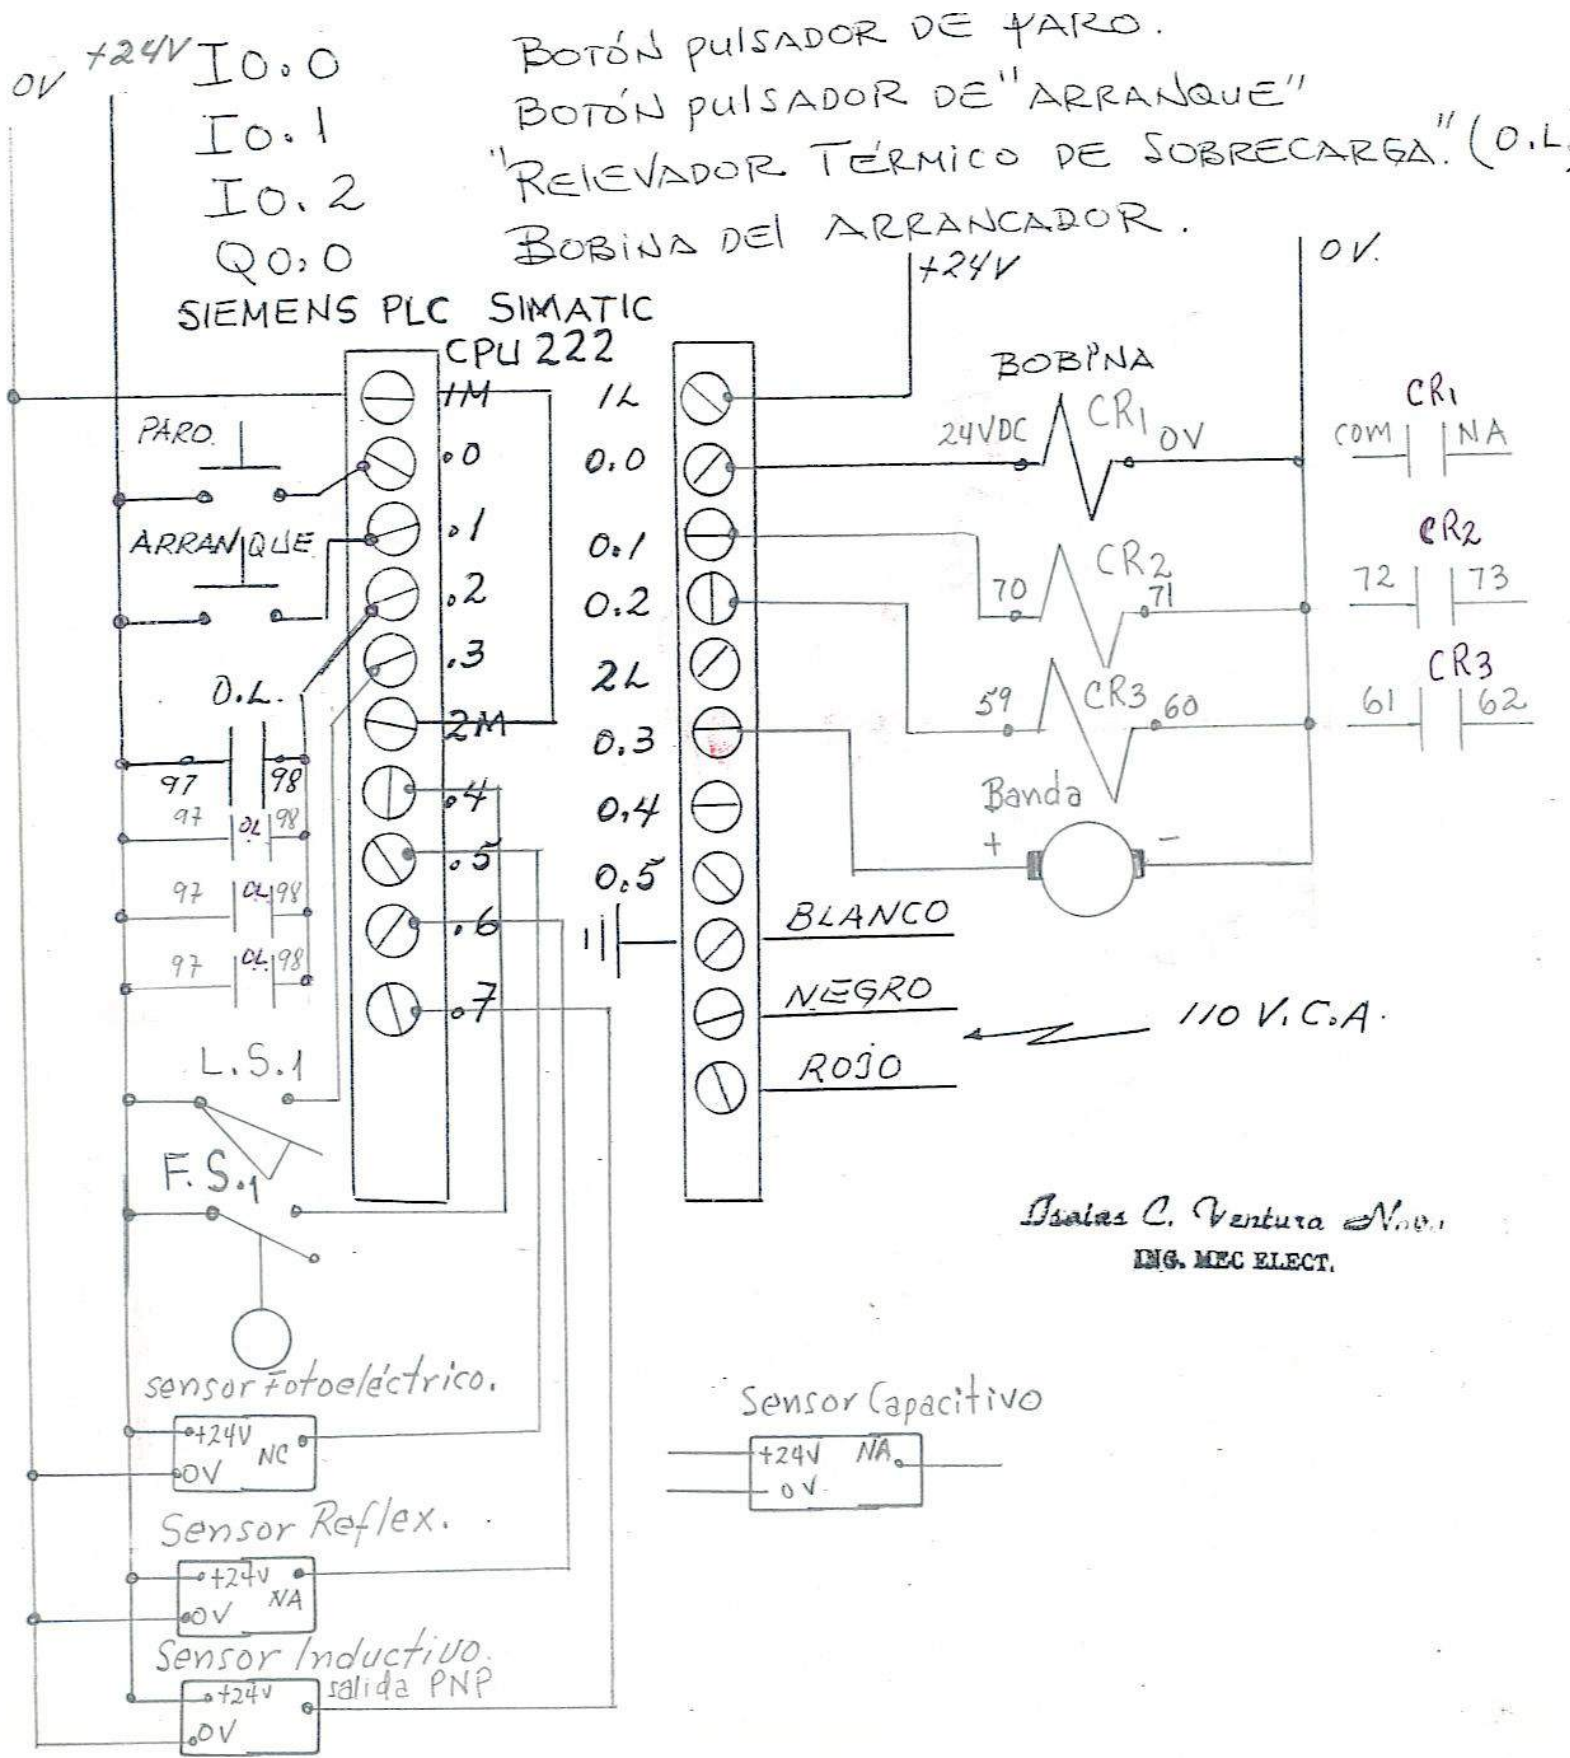 0V +24V I0.0 BOTÓN PULSADOR DE PARO.
I0.1 BOTÓN PULSADOR DE "ARRANQUE"
I0.2 "RELEVADOR TÉRMICO DE SOBRECARGA." (O.L.
Q0.0 BOBINA DEL ARRANCADOR.
+24V 0V.
SIEMENS PLC SIMATIC
CPU 222
1M
PARO.
.0
ARRANQUE
.1
.2
.3
O.L.
2M
97 98
.4
97 OL 98
.5
97 OL 98
.6
97 OL 98
.7
L.S.1
F.S.1
1L
0.0
0.1
0.2
2L
0.3
0.4
0.5
BOBINA
24VDC CR1 0V
70 CR2 71
59 CR3 60
Banda
+ -
CR1
COM NA
CR2
72 73
CR3
61 62
BLANCO
NEGRO
ROJO
110 V.C.A.
Isaias C. Ventura
ING. MEC ELECT.
sensor Fotoeléctrico.
+24V NC
0V
Sensor Reflex.
+24V NA
0V
Sensor Inductivo.
salida PNP
+24V
0V
Sensor Capacitivo
+24V NA
0V